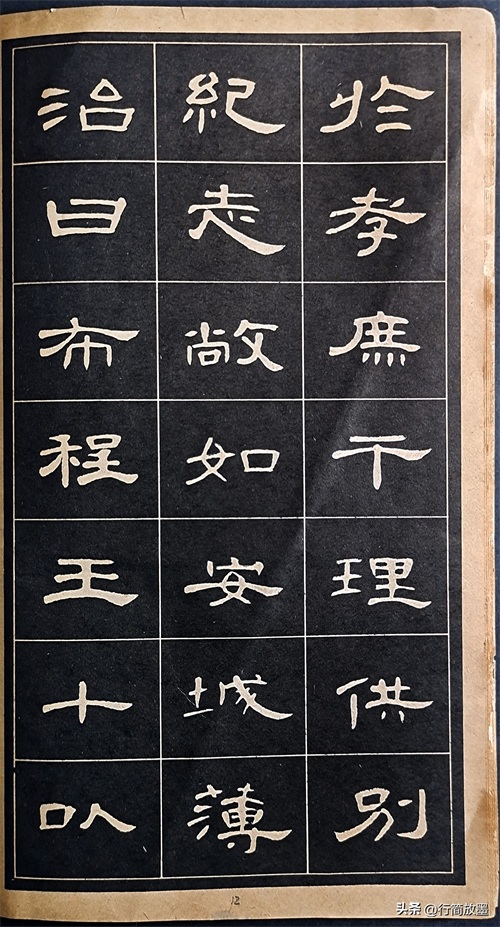 於孝庶干理供別
紀志敞如安城薄
治曰布程王十以
12
头条 @行简放墨